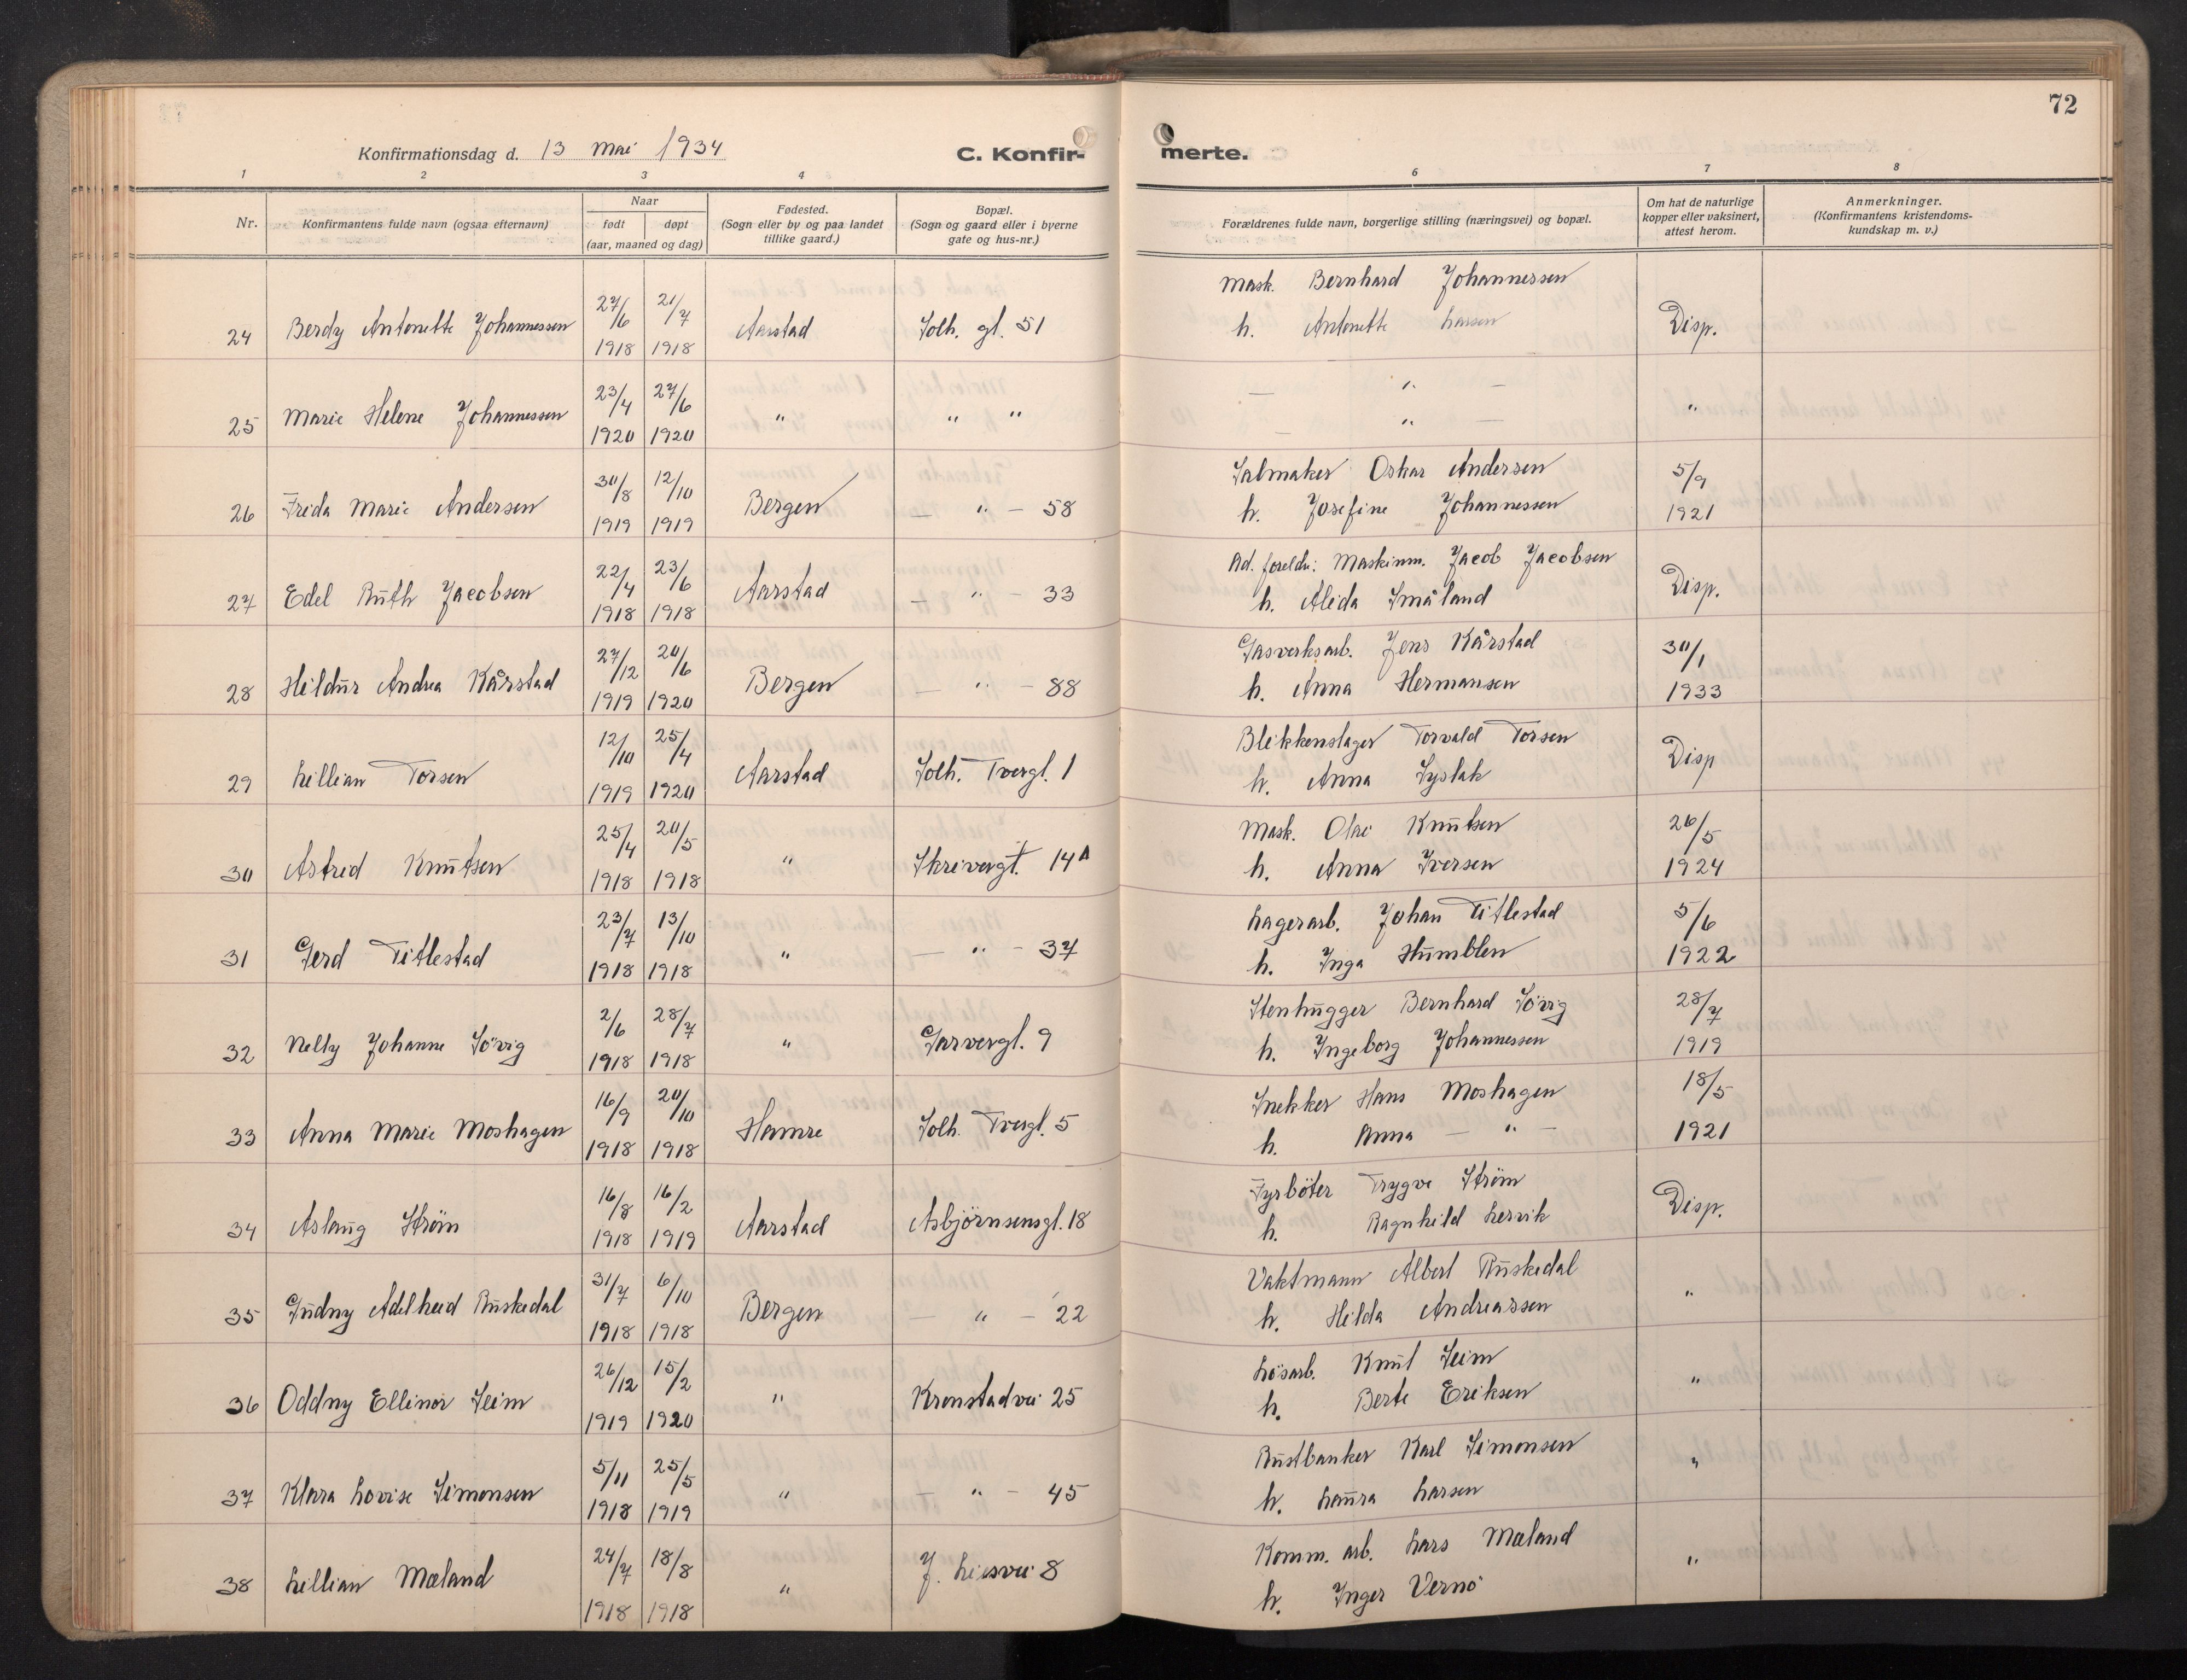 72
Konfirmationsdag d. 13 Mai 1934 C. Konfir- merte.
1 2 3 4 6 7 8
Nr. Konfirmantens fulde navn (ogsaa efternavn) Naar født døpt (aar, maaned og dag) Fødested. (Sogn eller by og paa landet tillike gaard.) Bopæl. (Sogn og gaard eller i byerne gate og hus-nr.) Forældrenes fulde navn, borgerlige stilling (næringsvei) og bopæl. Om hat de naturlige kopper eller vaksinert, attest herom. Anmerkninger. (Konfirmantens kristendoms-kundskap m. v.)
24 Berdy Antonette Johannessen 27/6 1918 21/7 1918 Aarstad Solh. gt. 51 Mask. Bernhard Johannessen Disp.
h. Antonette Larsen
25 Marie Helene Johannessen 23/4 1920 27/6 1920 " " " — " — "
— " —
26 Frida Marie Andersen 30/8 1919 12/10 1919 Bergen — " — 58 Salmaker Oskar Andersen 5/9 1921
h. Josefine Johannessen
27 Edel Ruth Jacobsen 22/4 1918 23/6 1918 Aarstad — " — 33 Ad. foreldr: Maskinm. Jacob Jacobsen Disp.
h. Alida Småland
28 Hildur Andrea Kårstad 27/12 1919 20/6 1920 Bergen — " — 88 Gasverksarb. Jens Kårstad 30/1 1933
h. Anna Hermansen
29 Lillian Torsen 12/10 1919 25/4 1920 Aarstad Solh. Tvergt. 1 Blikkenslager Torvald Torsen Disp
h. Anna Syslak
30 Astrid Knutsen 25/4 1918 20/5 1918 " Skrivergt. 14A Mask. Olai Knutsen 26/5 1924
h. Anna Iversen
31 Gerd Titlestad 23/7 1918 13/10 1918 " — " — 37 Lagerarb. Johan Titlestad 5/6 1922
h. Inga Humblen
32 Nelly Johanne Sövig 2/6 1918 28/7 1918 " Garvergt. 9 Stenhugger Bernhard Sövig 28/7 1919
h. Ingeborg Johannessen
33 Anna Marie Moshagen 16/9 1918 20/10 1918 Hamre Solh. Tvergt. 5 Snekker Hans Moshagen 18/5 1921
h. Anna — " —
34 Aslaug Strøm 16/8 1918 16/2 1919 Aarstad Asbjörnsensgt. 18 Fyrböter Trygve Strøm Disp.
h. Ragnhild Lervik
35 Gudny Adelheid Ruskedal 31/7 1918 6/10 1918 Bergen — " — 22 Vaktmann Albert Ruskedal "
h. Hilda Andreassen
36 Oddny Ellinor Seim 26/12 1919 15/2 1920 " Kronstadvei 25 Løsarb. Knut Seim "
h. Berte Eriksen
37 Klara Lovise Simonsen 5/11 1918 25/5 1919 " " — 45 Rustbanker Karl Simonsen "
h. Laura Larsen
38 Lillian Mæland 24/7 1918 18/8 1918 " J. Liesvei 8 Komm. arb. Lars Mæland "
h. Inger Vernö